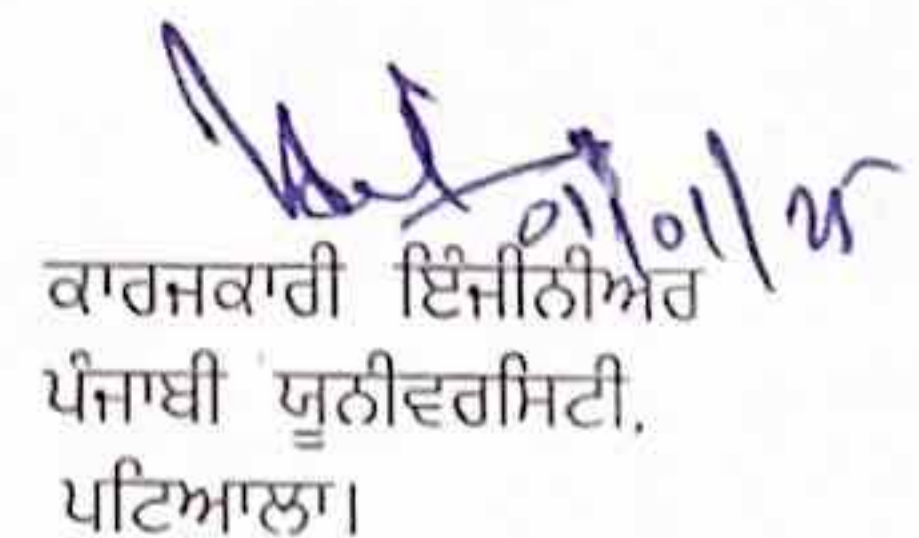 01/01/25
ਕਾਰਜਕਾਰੀ ਇੰਜੀਨੀਅਰ
ਪੰਜਾਬੀ ਯੂਨੀਵਰਸਿਟੀ,
ਪਟਿਆਲਾ।